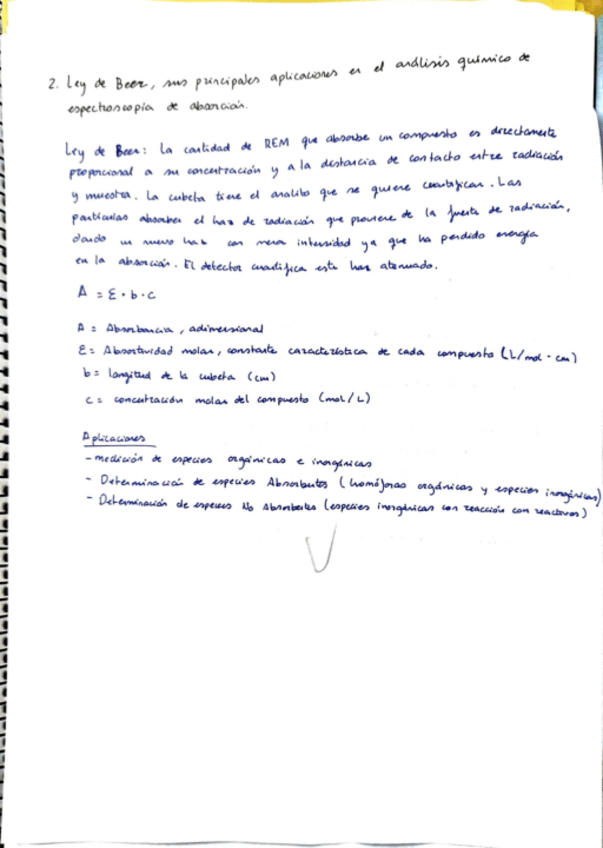 2. Ley de Beer, sus principales aplicaciones en el análisis químico de
espectroscopía de absorción.
Ley de Beer: La cantidad de REM que absorbe un compuesto es directamente
proporcional a su concentración y a la distancia de contacto entre radiación
y muestra. La cubeta tiene el analito que se quiere cuantificar. Las
partículas absorben el haz de radiación que proviene de la fuente de radiación,
dando un nuevo haz con menor intensidad ya que ha perdido energía
en la absorción. El detector cuantifica este haz atenuado.
A = ε · b · c
A = Absorbancia, adimensional
ε = Absortividad molar, constante característica de cada compuesto (L/mol · cm)
b = longitud de la cubeta (cm)
c = concentración molar del compuesto (mol/L)
Aplicaciones
- medición de especies orgánicas e inorgánicas
- Determinación de especies Absorbentes (homóforas orgánicas y especies inorgánicas)
- Determinación de especies No Absorbentes (especies inorgánicas con reacción con reactivos)